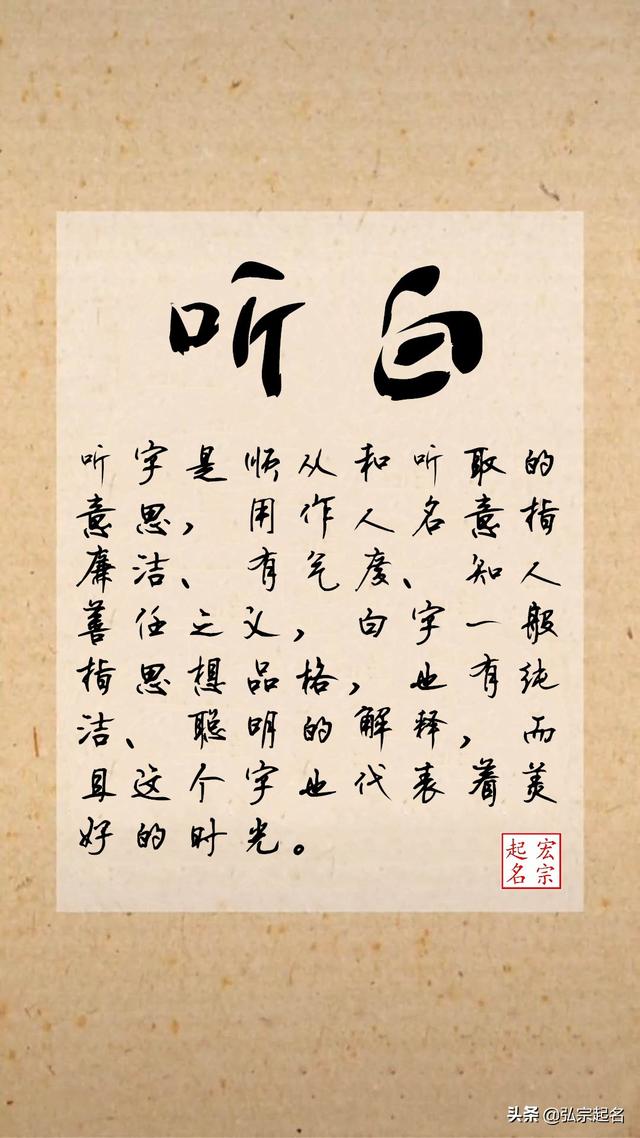 听白
听字是顺从和听取的
意思，用作人名意指
廉洁、有气度、知人
善任之义，白字一般
指思想品格，也有纯
洁、聪明的解释，而
且这个字也代表着美
好的时光。
宏宗
起名
头条 @弘宗起名